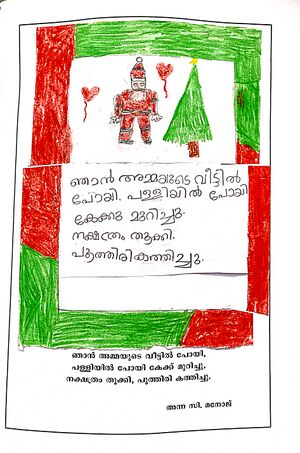 ഞാൻ അമ്മയുടെ വീട്ടിൽ
പോയി. പള്ളിയിൽ പോയി
കേക്കു മുറിച്ചു.
നക്ഷത്രം തൂക്കി.
പൂത്തിരികത്തിച്ചു.
ഞാൻ അമ്മയുടെ വീട്ടിൽ പോയി,
പള്ളിയിൽ പോയി കേക്ക് മുറിച്ചു,
നക്ഷത്രം തൂക്കി, പൂത്തിരി കത്തിച്ചു.
അന്ന സി. മനോജ്